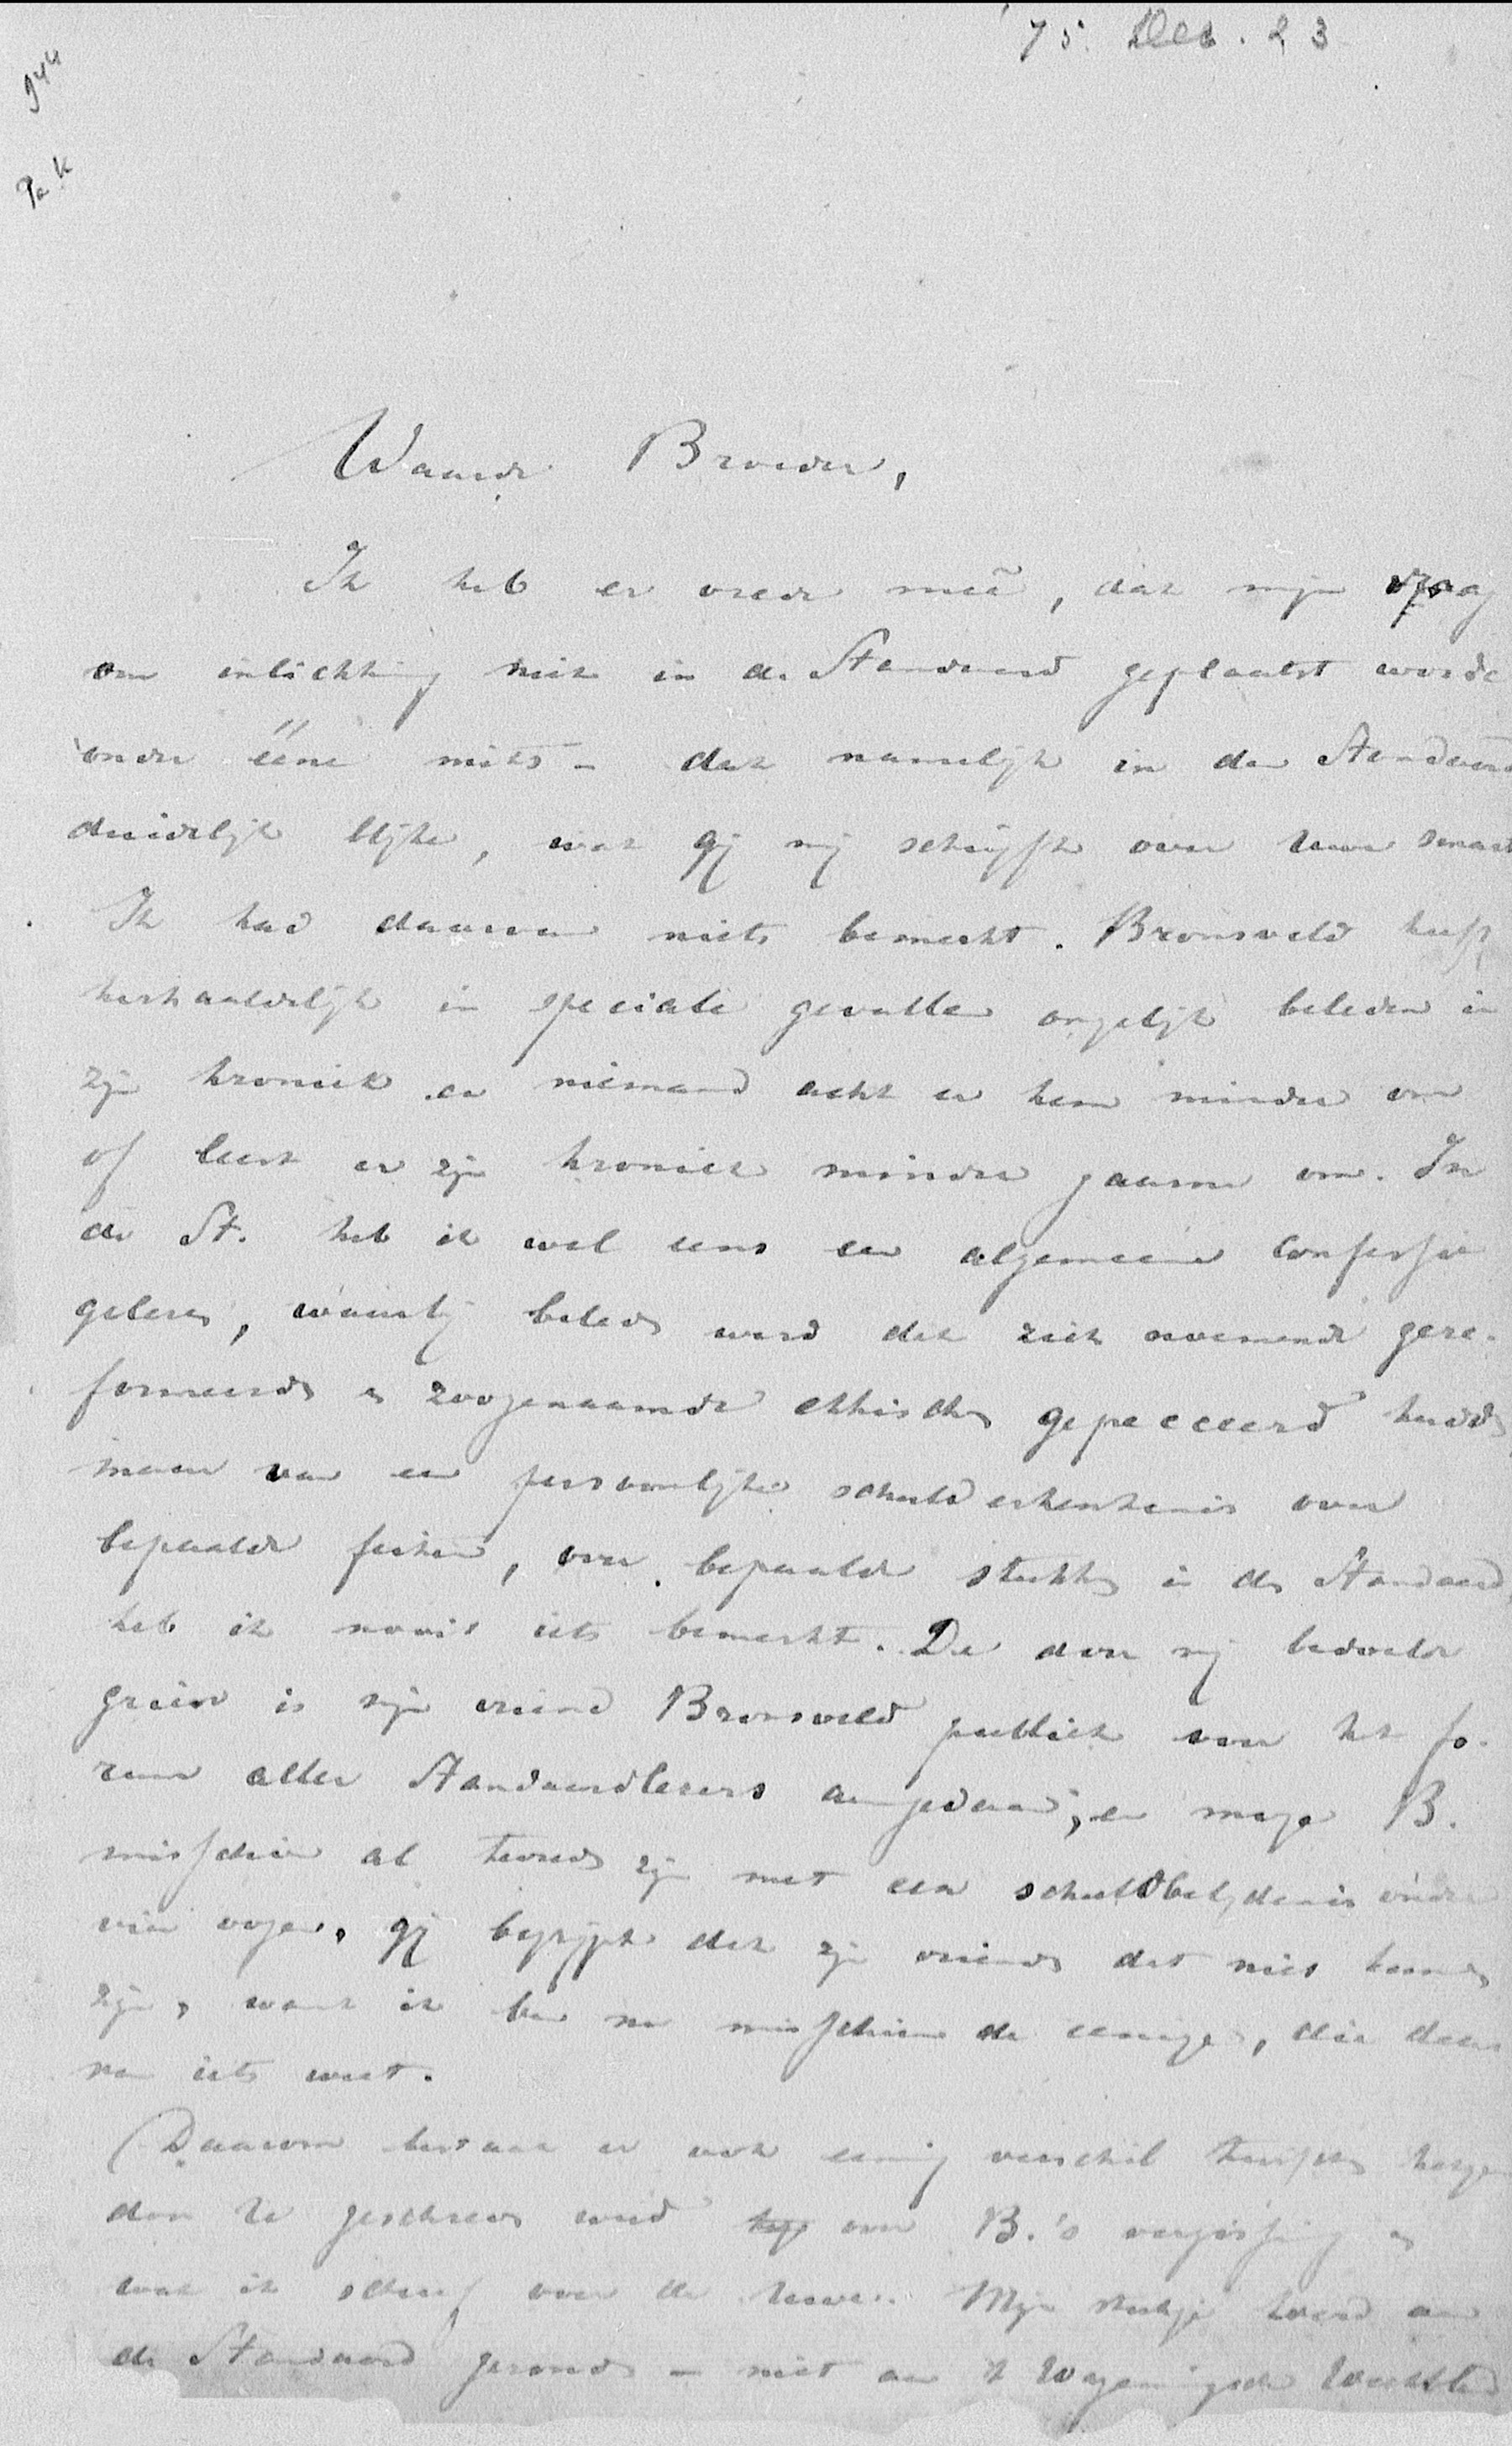 '75. Dec. 23
944
Pak
Waarde Broeder,
Ik heb er vrede meê, dat mijn vraag
om inlichting niet in de Standaard geplaatst worde
onder ééne mits – dat namelijk in de Standaard
duidelijk blijke, wat gij mij schrijft over uwe smart
Ik had daarvan niets bemerkt. Bronsveld heeft
herhaaldelijk in speciale gevallen ongelijk beleden in
zijn kroniek en niemand acht er hem minder om
of leest er zijn kroniek minder gaarne om. In
de St. heb ik wel eens een algemeene confessie
gelezen, waarbij beleden werd dat zich noemende gere-
formeerden en zoogenaamde ethischen gepecceerd hadden
maar van een persoonlijke schulderkentenis over
bepaalde feiten, over bepaalde stukken in de Standaard,
heb ik nooit iets bemerkt. De door mij bedoelde
grief is mijn vriend Bronsveld publiek voor het fo-
rum aller Standaardlezers aangedaan; en moge B.
misschien al tevreden zijn met een schuldbelijdenis onder
vier oogen, gij begrijpt dat zijn vrienden dat niet kunnen
zijn, want ik ben nu misschien de eenige, die daar
van iets weet.
(Daarom bestaat er ook eenig verschil tusschen hetgeen
door U geschreven werd over B.'s vergissing en
wat ik schreef over de uwe. Mijn stukje werd aan
de Standaard gezonden – niet aan 't Wageningsch Weekblad